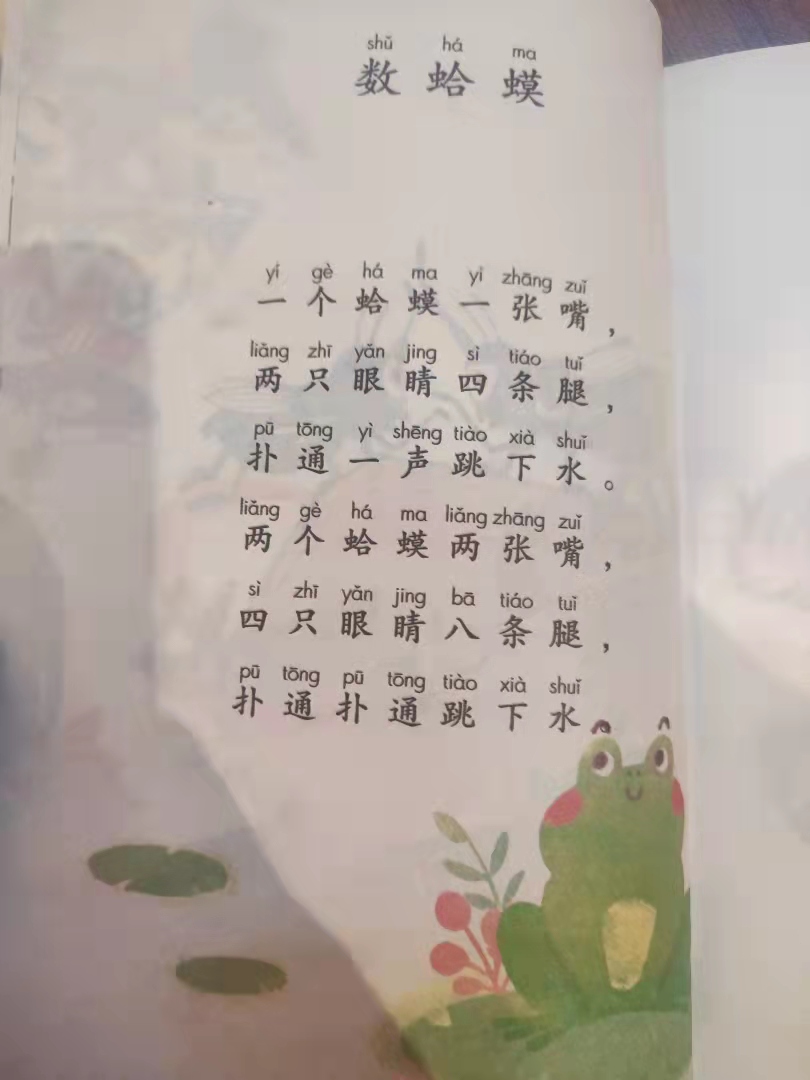 shǔ há ma
数蛤蟆
yí gè há ma yì zhāng zuǐ
一个蛤蟆一张嘴，
liǎng zhī yǎn jing sì tiáo tuǐ
两只眼睛四条腿，
pū tōng yì shēng tiào xià shuǐ
扑通一声跳下水。
liǎng gè há ma liǎng zhāng zuǐ
两个蛤蟆两张嘴，
sì zhī yǎn jing bā tiáo tuǐ
四只眼睛八条腿，
pū tōng pū tōng tiào xià shuǐ
扑通扑通跳下水。